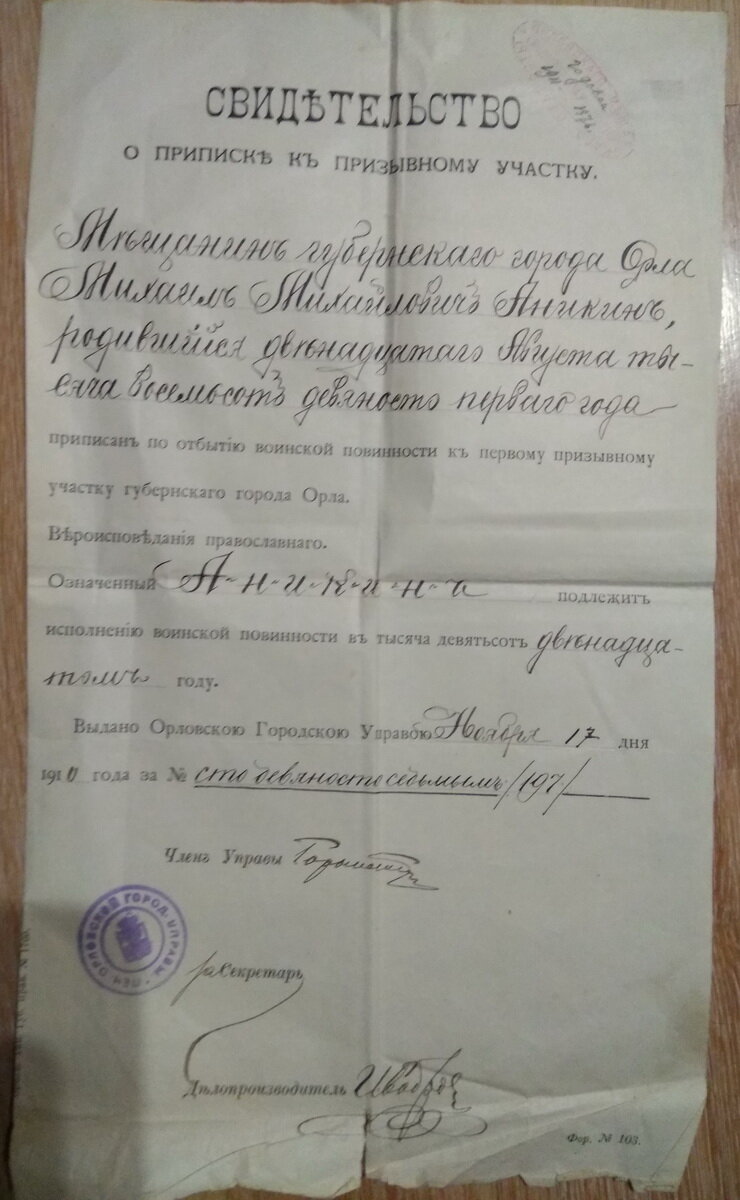 годовой
1911 1976
СВИДѢТЕЛЬСТВО
О ПРИПИСКѢ КЪ ПРИЗЫВНОМУ УЧАСТКУ.
Мѣщанинъ губернскаго города Орла
Михаилъ Михайловичъ Аникинъ,
родившійся двѣнадцатаго Августа ты-
сяча восемьсотъ девяносто перваго года
приписанъ по отбытію воинской повинности къ первому призывному
участку губернскаго города Орла.
Вѣроисповѣданія православнаго.
Означенный А-н-и-к-и-н-ъ подлежитъ
исполненію воинской повинности въ тысяча девятьсотъ двѣнадца-
томъ году.
Выдано Орловскою Городскою Управою Ноября 17 дня
1910 года за № сто девяносто седьмымъ /197/
Членъ Управы
ПЕЧ. ОРЛОВСКОЙ ГОРОД. УПРАВЫ
за Секретарь
Дѣлопроизводитель
Фор. № 103.